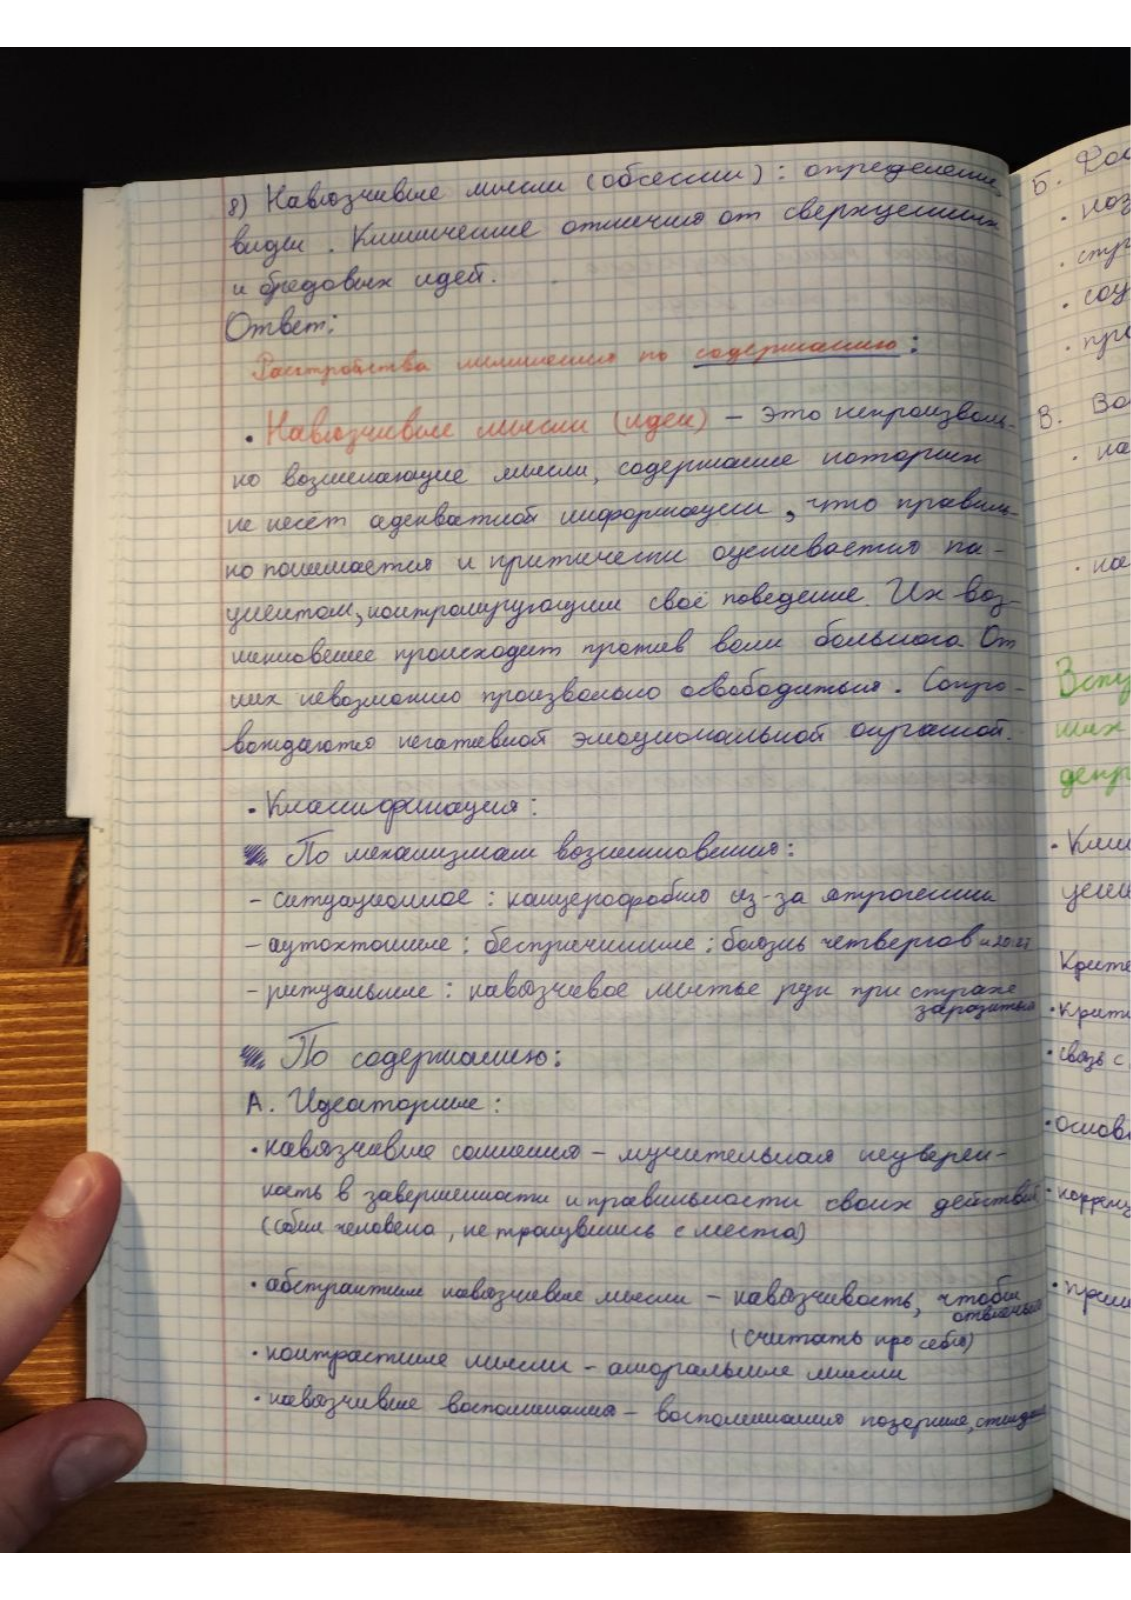 8) Навязчивые мысли (обсессии): определение,
виды. Клинические отличия от сверхценных
и бредовых идей.
Ответ:
Расстройства мышления по содержанию:
• Навязчивые мысли (идеи) – это непроизволь-
но возникающие мысли, содержание которых
не несёт адекватной информации, что правиль-
но понимается и критически оценивается па-
циентом, контролирующим своё поведение. Их воз-
никновение происходит против воли больного. От
них невозможно произвольно освободиться. Сопро-
вождаются негативной эмоциональной окраской.
• Классификация:
По механизмам возникновения:
– ситуационное: канцерофобия из-за ятрогении
– аутохтонные: беспричинные: боязнь четвергов и
– ритуальные: навязчивое мытье рук при страхе
заразиться
По содержанию:
А. Идеаторные:
• навязчивые сомнения – мучительная неуверен-
ность в завершенности и правильности своих действий
(сбил человека, не тронувшись с места)
• абстрактные навязчивые мысли – навязчивость, чтобы
отвлечься
(считать про себя)
• контрастные мысли – аморальные мысли
• навязчивые воспоминания – воспоминания позорные,
Б.
•
•
•
•
В.
•
•
•
•
• связь с
•
•
•